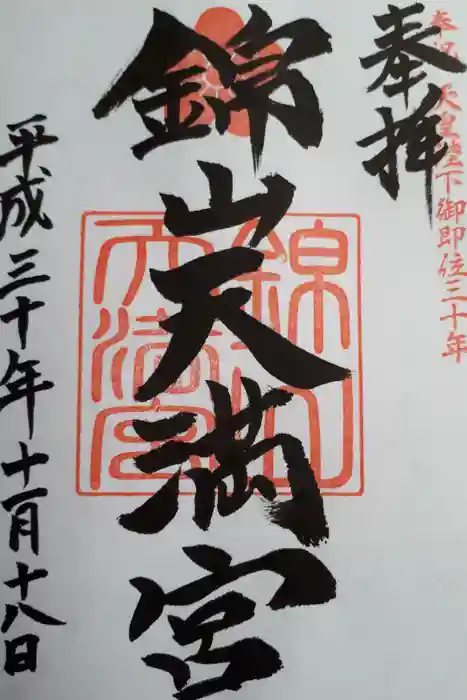 奉祝 天皇陛下御即位三十年
奉拝
錦山天満宮
錦山天満宮
平成三十年十一月十八日